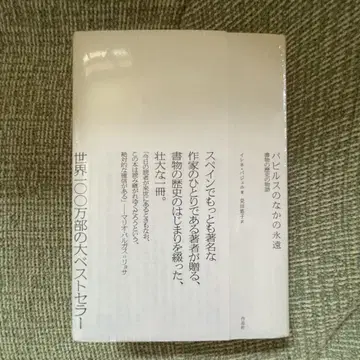 パピルスのなかの永遠
書物の歴史の物語
スペインでもっとも著名な
作家のひとりである著者が贈る、
書物の歴史のはじまりを綴った、
壮大な一冊。
「今日の読者が来世にあるときもなお、
この本は読み継がれてゆくだろうという、
絶対的な確信がある」――マリオ・バルガス・リョサ
世界一〇〇万部の大ベストセラー